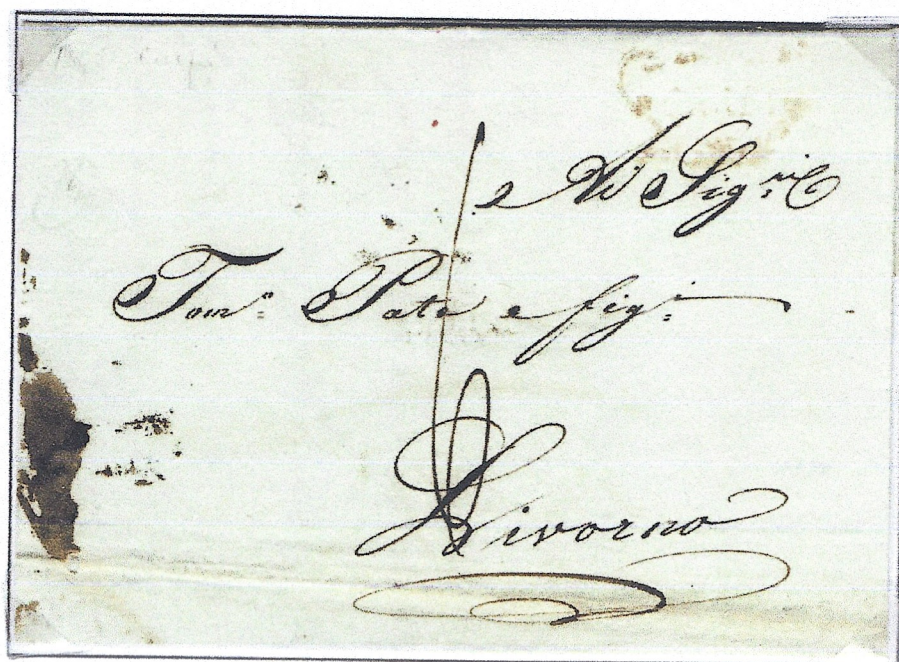 Ai Sig.ri
Tom.o Pate e fig.i
Livorno